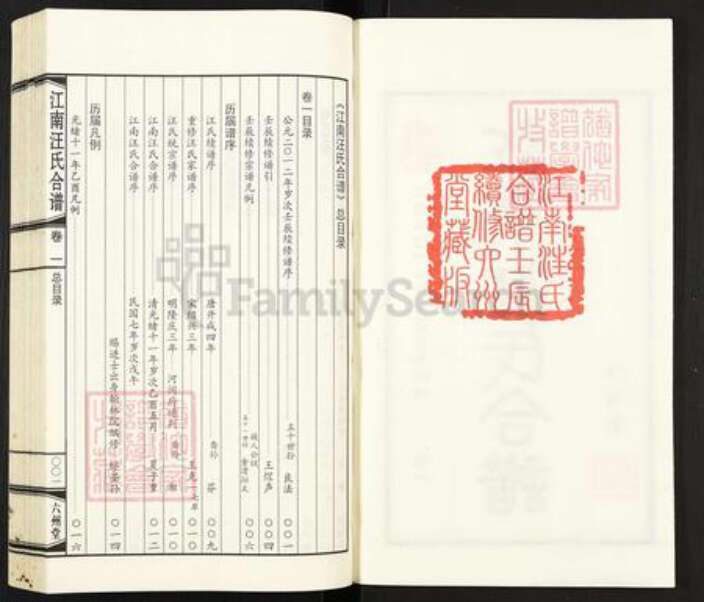 江南汪氏
合譜壬辰
續修六州
堂藏版
《江南汪氏合谱》总目录
卷一目录
公元二〇一二年岁次壬辰续修谱序 五十世孙 良法 〇〇一
壬辰续修谱引 王煜声 〇〇四
壬辰续修宗谱凡例 〇〇六
历届谱序
江氏续谱序 唐开成四年 裔孙 芬 〇〇九
重修汪氏家谱序 宋绍兴三年 〇一〇
江氏统宗谱序 明隆庆三年 河间府通判 裔孙 〇一〇
江南汪氏合谱序 清光绪十一年岁次乙酉五月 夏子重 〇一二
江南汪氏合谱序 民国七年岁次戊午
赐进士出身翰林院编修 〇一四
历届凡例
光绪十一年乙酉凡例 〇一六
江南汪氏合谱 卷一 总目录 〇〇一 六州堂
FamilySearch